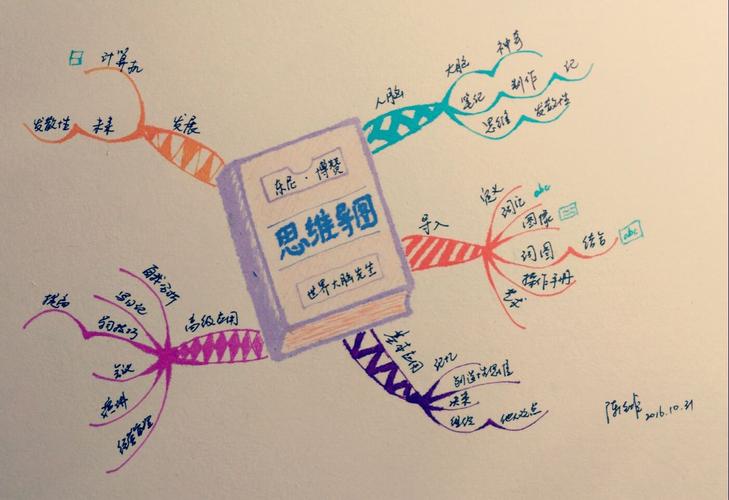 东尼·博赞
思维导图
世界大脑先生
人脑
大脑
神奇
笔记
制作
记
思维
发散性
导入
定义
词汇
abc
图像
词图
结合
abc
操作手册
艺术
基本应用
记忆
创造性思维
决策
组织
他人观点
高级应用
自我分析
写日记
学习技巧
提高
会议
演讲
经营管理
发展
计算机
未来
发散性
2016.10.31